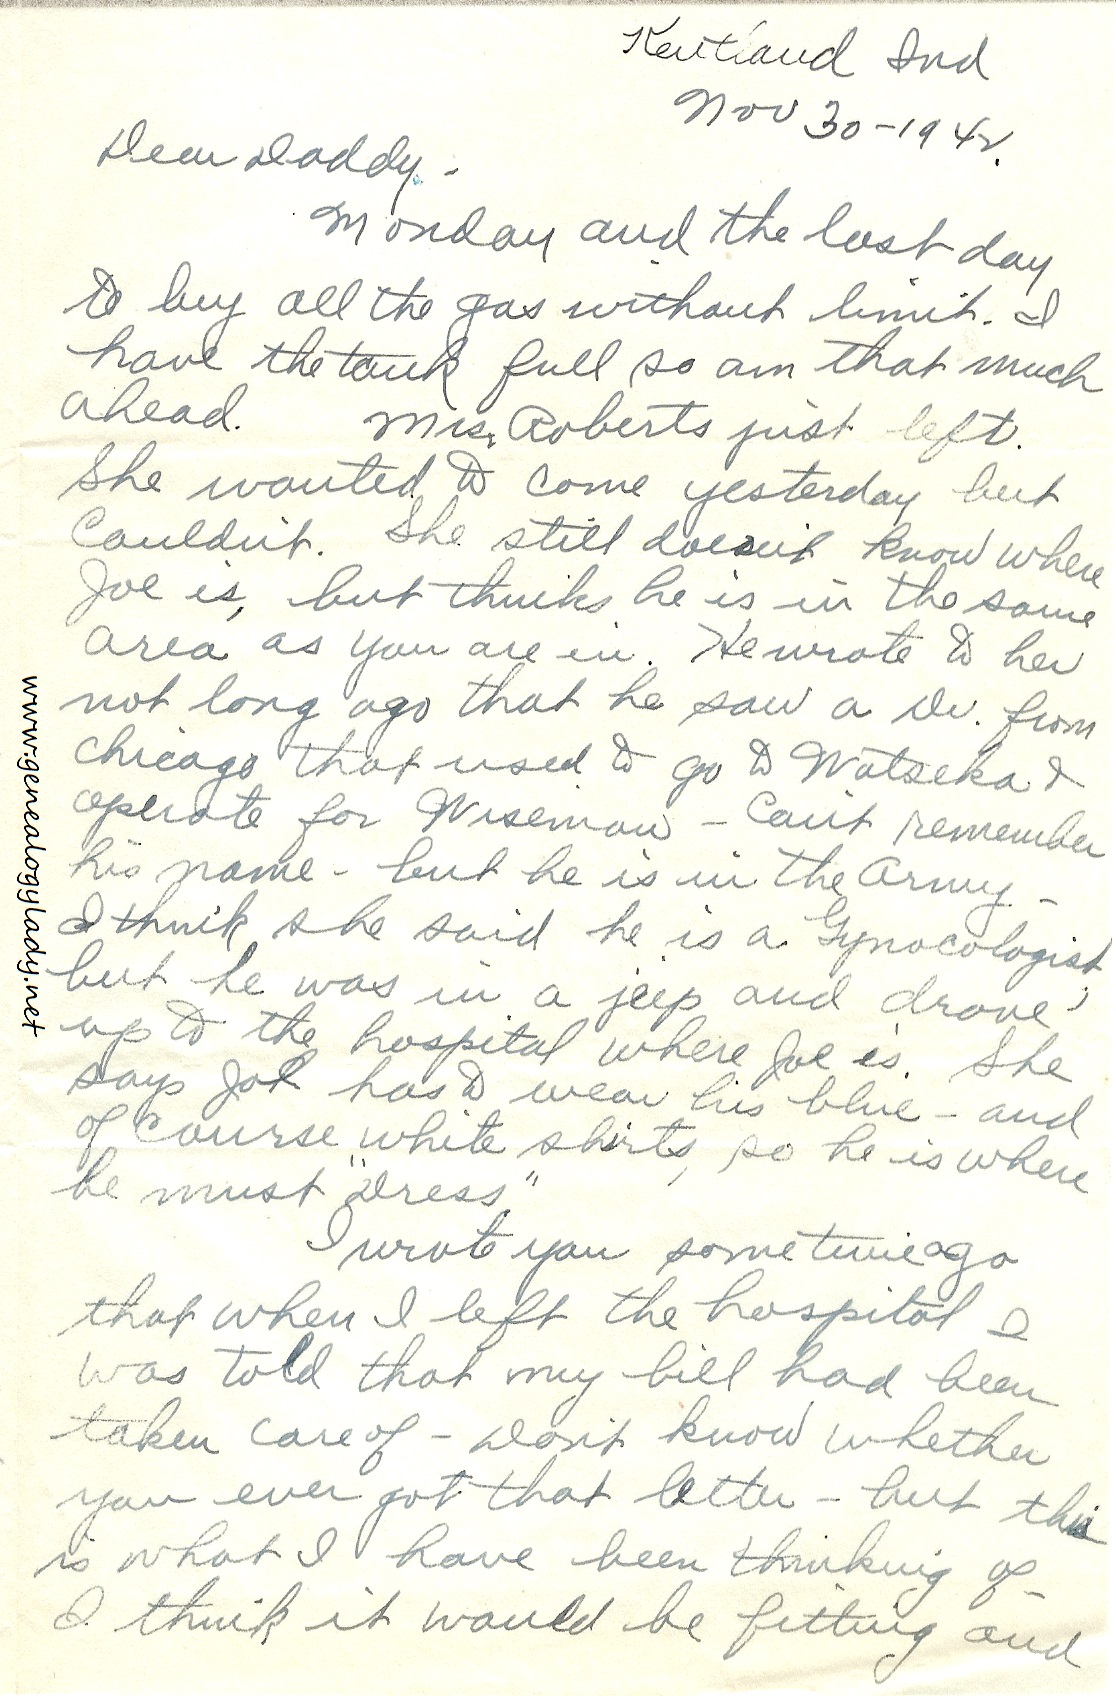 Kentland Ind
Nov 30-1942.
Dear Daddy -
Monday and the last day
to buy all the gas without limit. I
have the tank full so am that much
ahead. Mrs. Roberts just left.
She wanted to come yesterday but
couldn't. She still doesn't know where
Joe is, but thinks he is in the same
area as you are in. He wrote to her
not long ago that he saw a Dr. from
Chicago that used to go to Watseka &
operate for Wiseman - Can't remember
his name - but he is in the Army -
I think she said he is a Gynocologist,
but he was in a jeep and drove
up to the hospital where Joe is. She
says Joe has to wear his blue - and
of course white shirts, so he is where
he must "Dress"
I wrote you sometime ago
that when I left the hospital I
was told that my bill had been
taken care of - Don't know whether
you ever got that letter - but this
is what I have been thinking of -
I think it would be fitting and
www.genealogylady.net